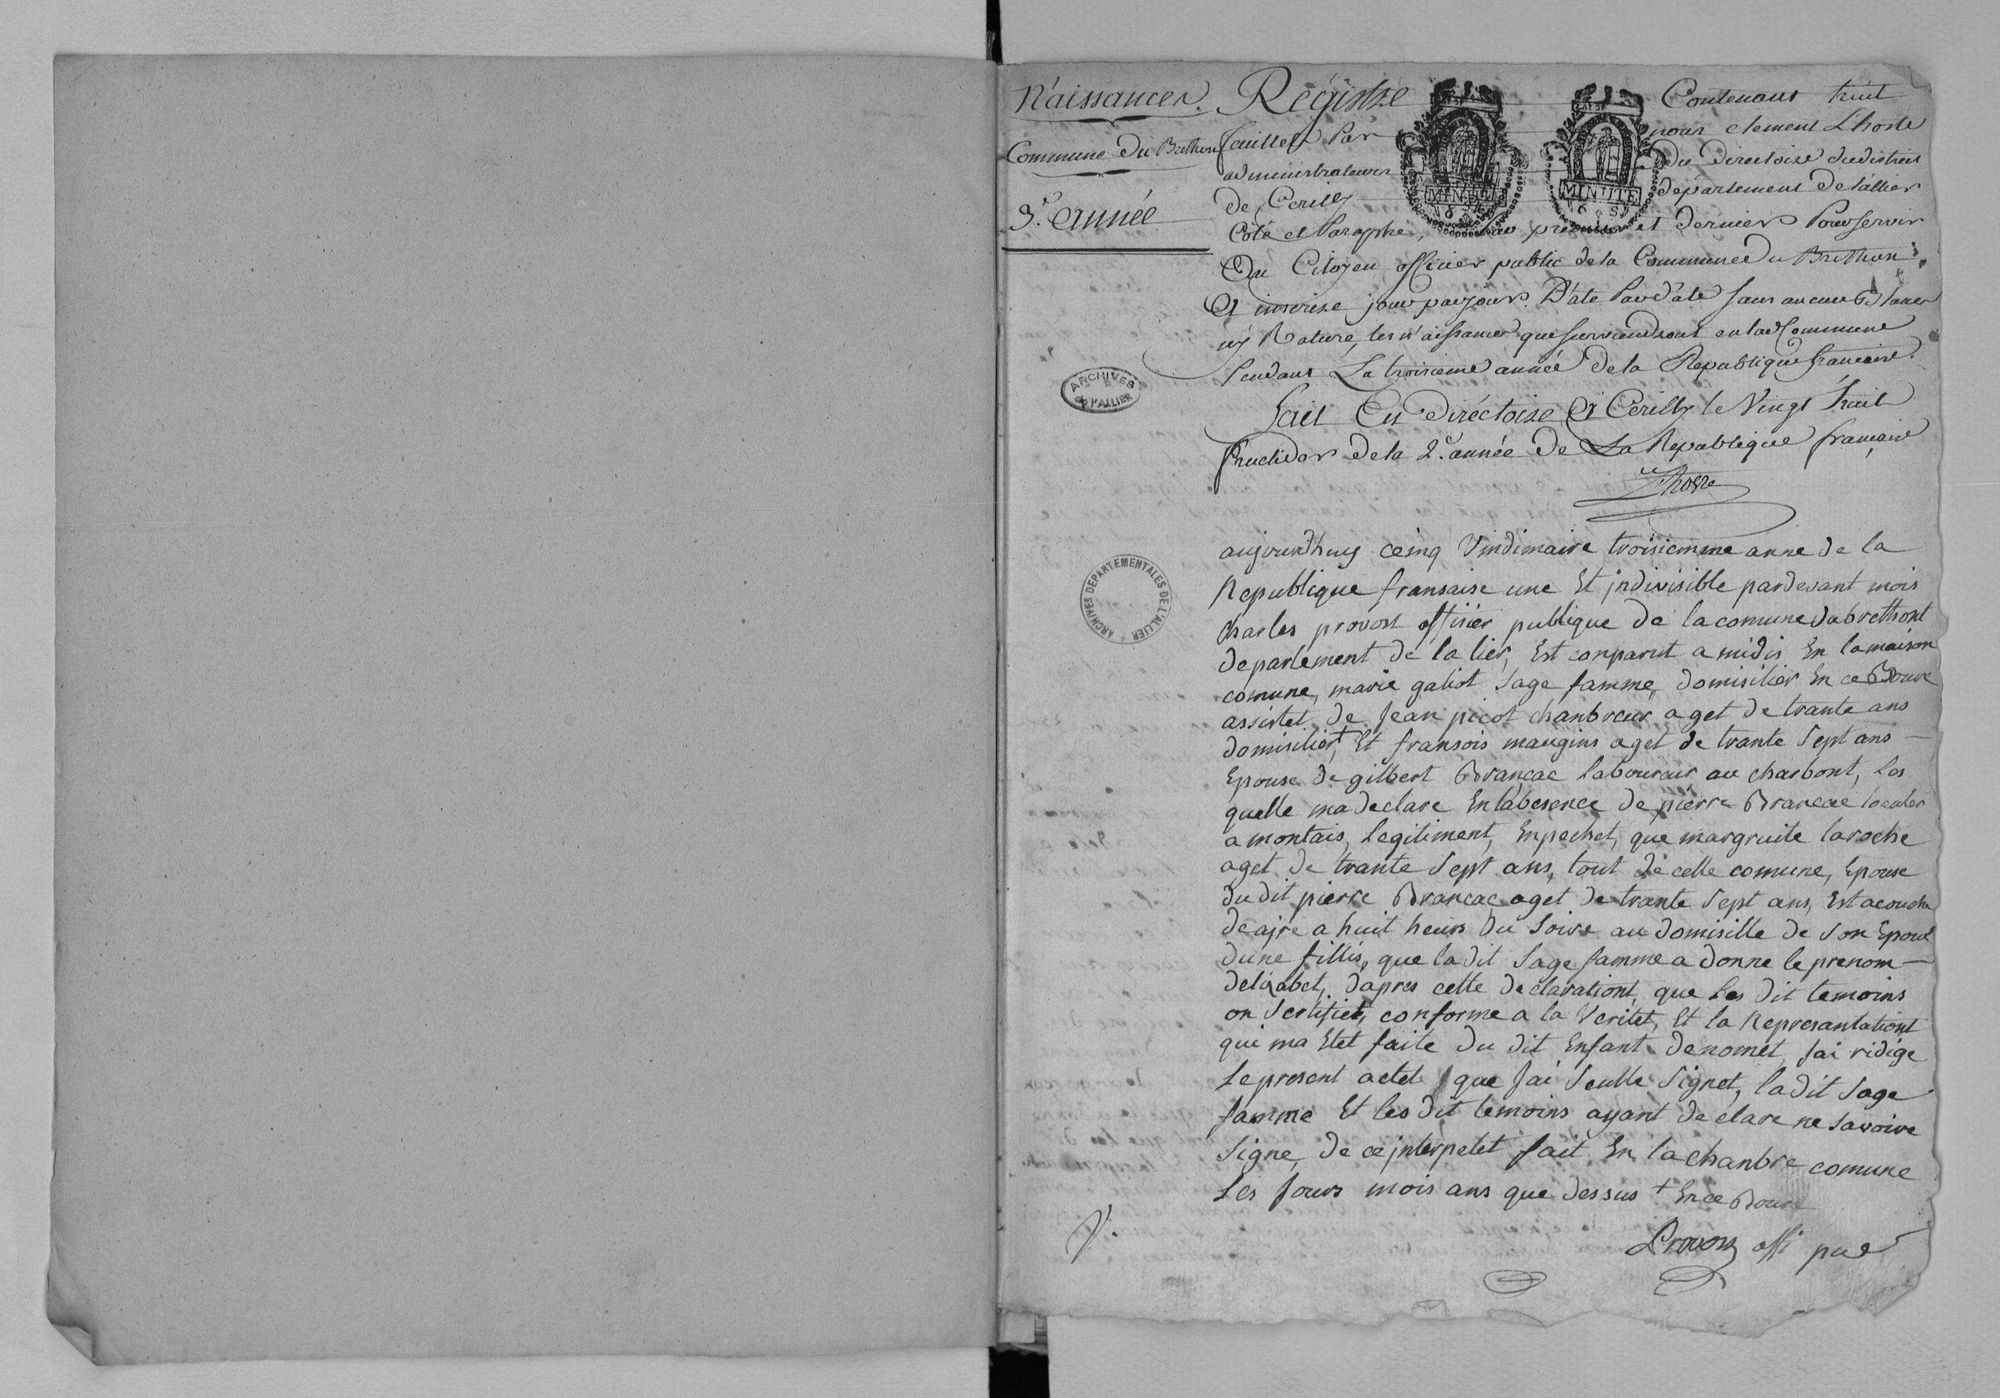 Naissances.
Commune du Brethon
3.e année
Registre Contenant huit
feuillets Par nous clement Lhoste
administrateur du Directoire du district
de Cerilly departement de l'allier
Coté et Paraphé, premier et dernier Pour servir
Au Citoyen officier public de la Commune du Brethon
A inscrire jour par jour. Date Par date sans aucun Blanc
ny Rature, les naissances que surviendront en lad Commune
Pendant La troisieme année de la Republique francaise.
Fait En Diréctoire A Cerilly le Vingt huit
fructidor de la 2.e année De La Republique francaise
Lhoste
MINUTE
MINUTE
ARCHIVES DE L'ALLIER
ARCHIVES DÉPARTEMENTALES DE L'ALLIER
aujourdhuy ceinq Vindimaire troisiemme anne de la
Republique fransaise une Et jndivisible pardevant mois
Charles provost offisier publique de la comune dubrethont
departement de la lier, Est conparut a midis En la maison
comune, marie galiot sage famme, domisilier En ce Bourc
assistet de Jean picot chanbreur aget de trante ans
domisilier + Et fransois maugins aget de trante sept ans
Epouse de gilbert Brancac laboureur au charbont, las
quelle ma declare En labesence de pierre Brancac locater
a montais, legitiment, Enpechet, que margruite laroche
aget de trante sept ans, tout de celle comune, Epouse
du dit pierre Brancac aget de trante sept ans, Est acouche
de ajre a huit heurs du soire au domisille de son Epout
dune fillis, que la dit sage famme a donne le prenom
delizabet, dapres cette declarationt, que les dit temoins
on sertifiet, conforme a la Veritet, Et la Represantationt
qui ma Etet faite du dit Enfant denomet, jai ridige
le present actet que jai seulle signet, la dit sage
famme Et les dit temoins ayant declare ne savoire
signe, de ce jnterpelet fait En la chanbre comune
les jours mois ans que dessus + En ce Bourc
Provost offi pue